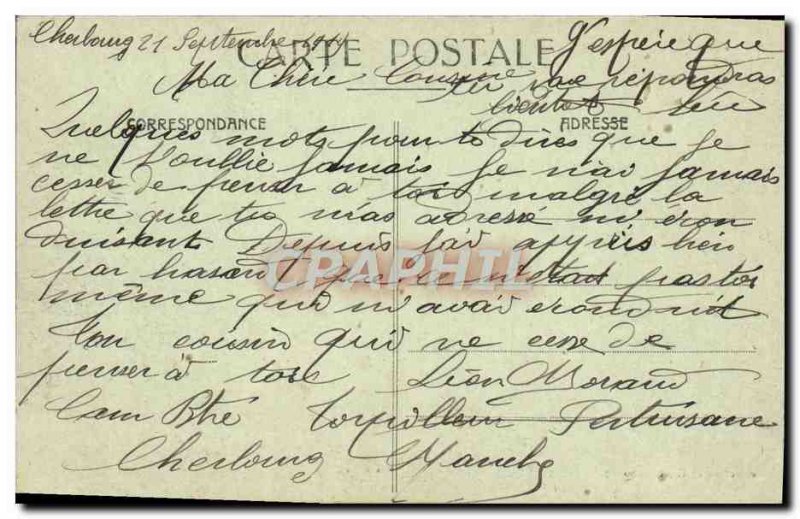 Cherbourg 21 Septembre
CARTE POSTALE
J'espère que
Ma Chère Cousine
tu me répondras
bientôt
CORRESPONDANCE
ADRESSE
Quelques mots pour te dire que Je
ne t'oublie Jamais Je n'ai Jamais
cesser de penser à toi malgré la
lettre que tu mas adressé m'écon
duisant Depuis j'ai appris hier
par hasard que ce n'était pas toi
même qui m'avai econduit
CPAPHIL
Ton cousin qui ne cesse de
penser à toi Léon Morand
torpilleur Pertuisane
Cherbourg Manche